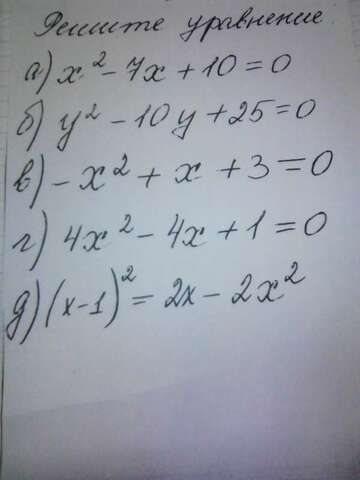 Решите уравнение
а) x² - 7x + 10 = 0
б) y² - 10y + 25 = 0
в) - x² + x + 3 = 0
г) 4x² - 4x + 1 = 0
д) (x - 1)² = 2x - 2x²